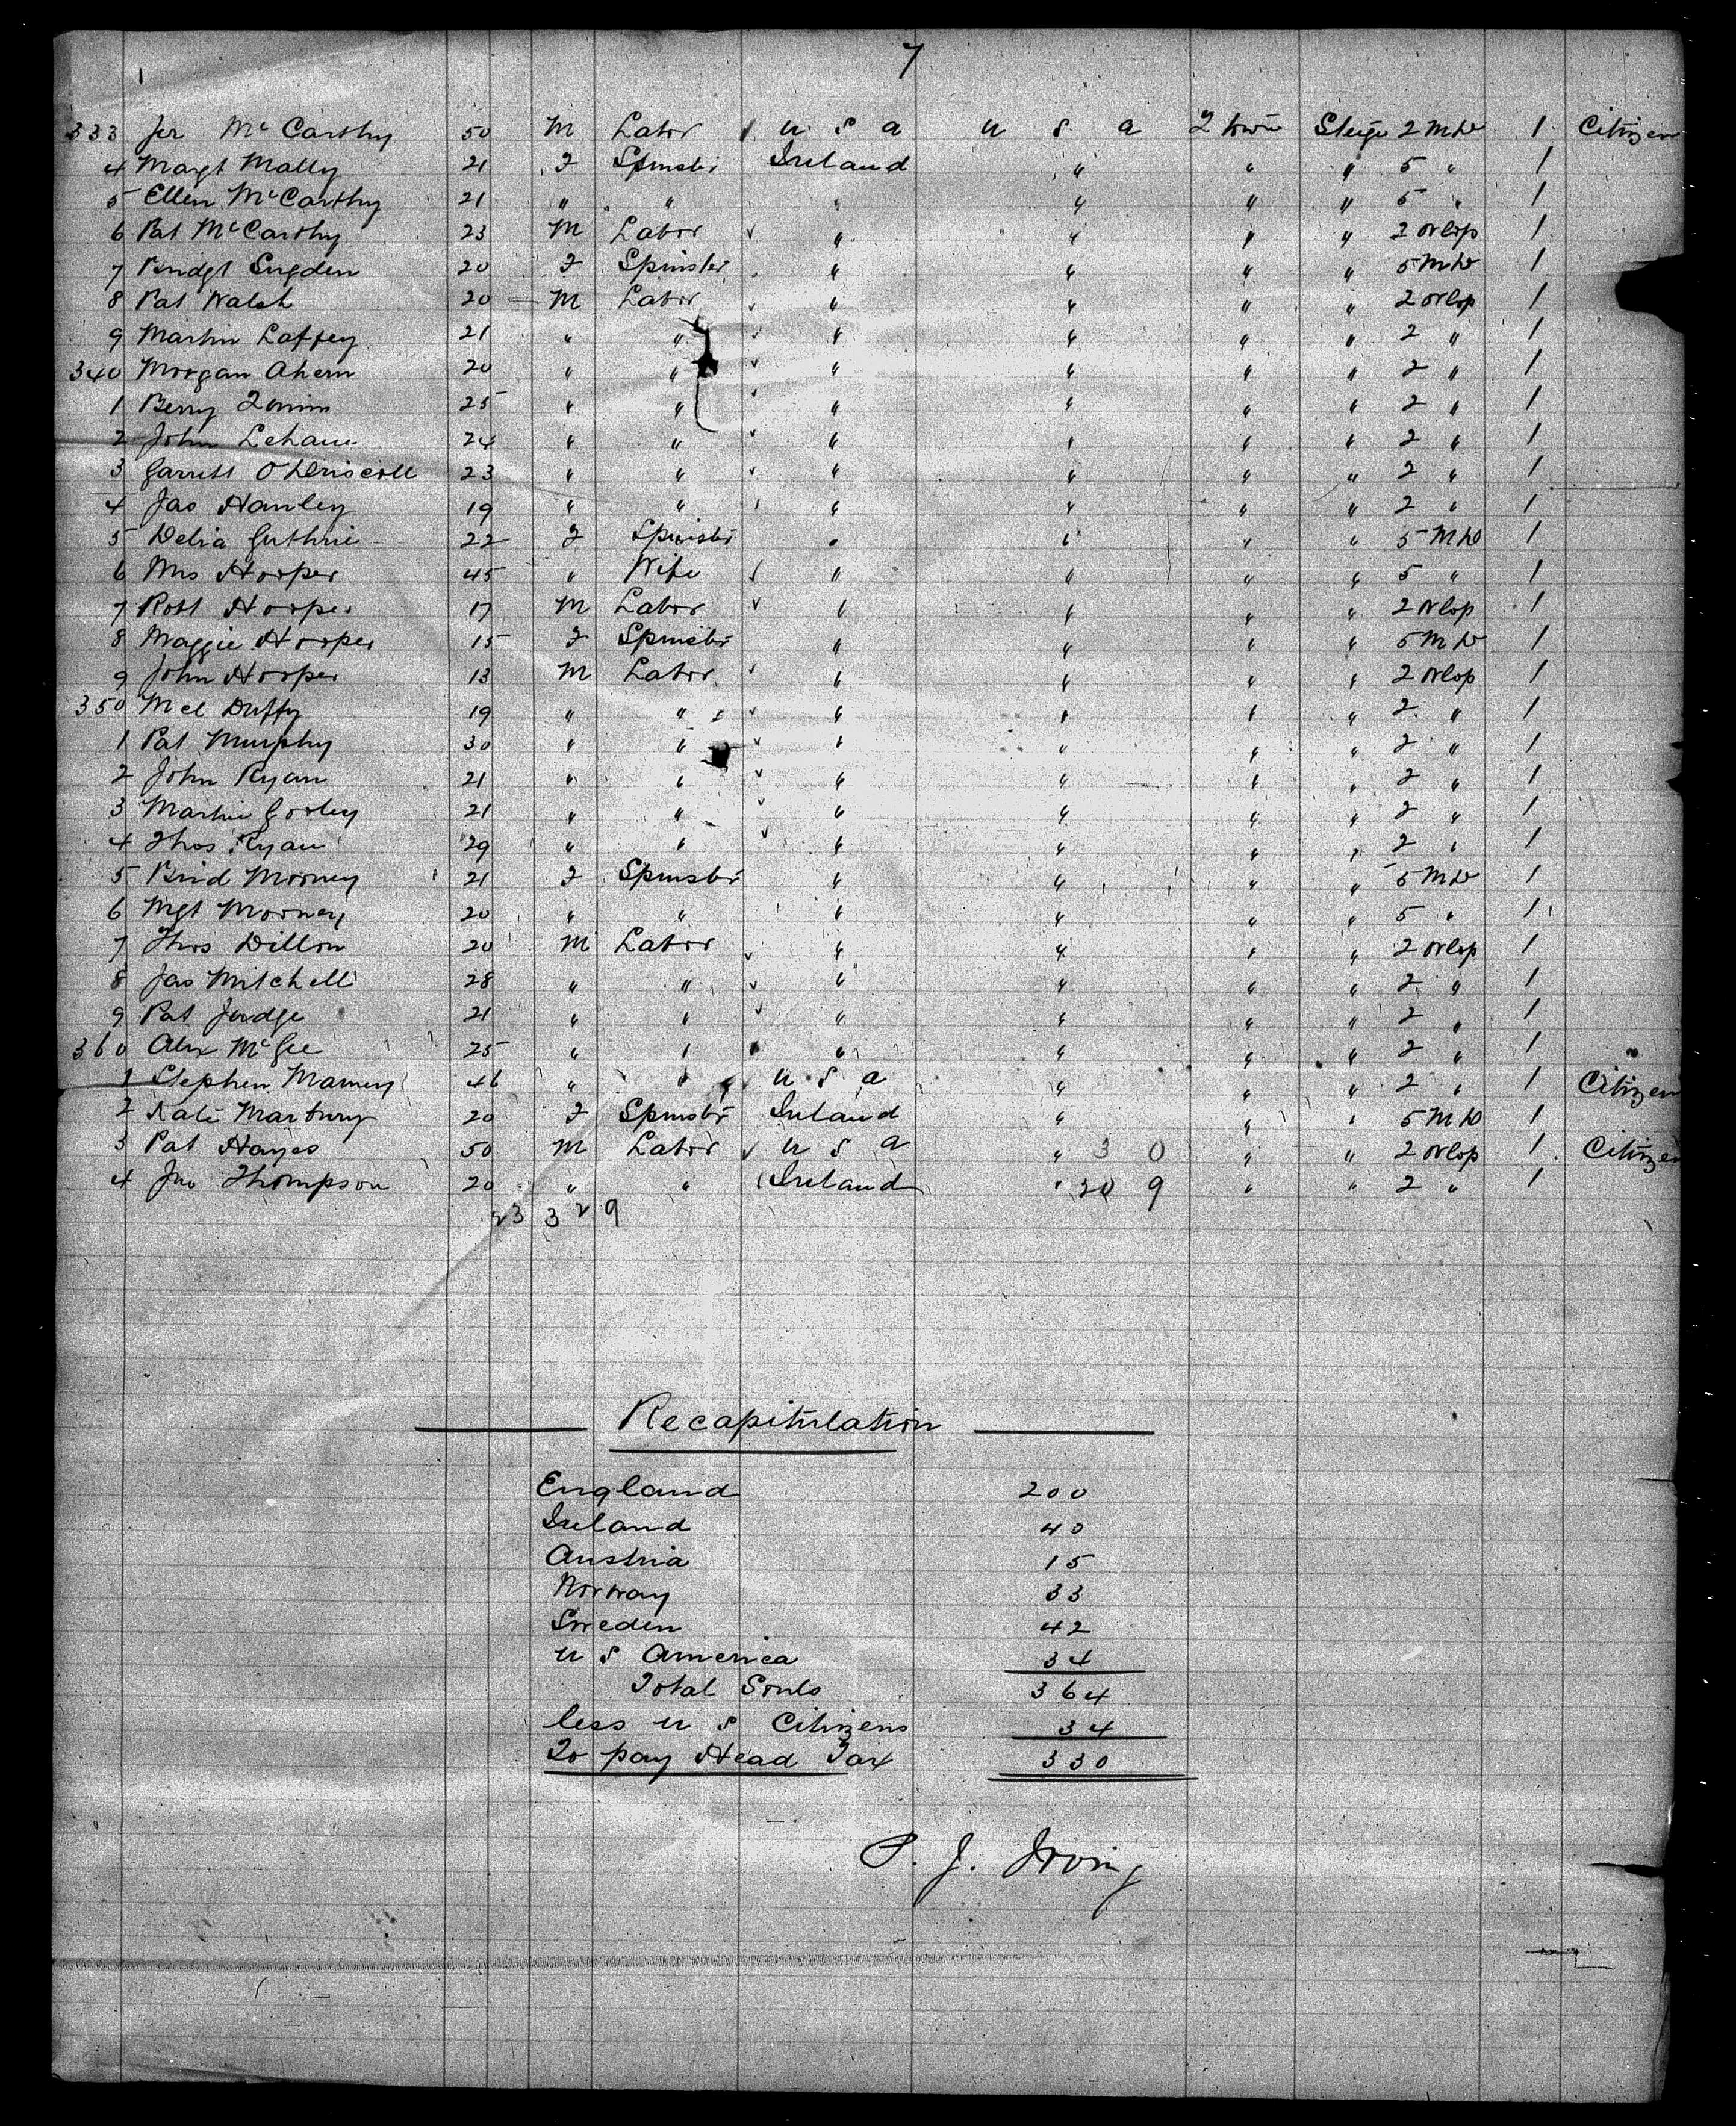 7
333 Jer McCarthy 50 M Labor U S A U S A Q town Steige 2 M D 1 Citizen
4 Margt Mally 21 F Spinstr Ireland " " " 5 " 1
5 Ellen McCarthy 21 " " " " " " 5 " 1
6 Pat McCarthy 23 M Labor " " " " 2 Orlop 1
7 Bridgt Sugden 20 F Spinster " " " " 5 M D 1
8 Pat Walsh 20 M Labor " " " " 2 Orlop 1
9 Martin Laffey 21 " " " " " " 2 " 1
340 Morgan Ahern 20 " " " " " " 2 " 1
1 Berry 25 " " " " " " 2 " 1
2 John Lehane 24 " " " " " " 2 " 1
3 Garrett O'Driscoll 23 " " " " " " 2 " 1
4 Jas Hanley 19 " " " " " " 2 " 1
5 Delia Guthrie 22 F Spinstr " " " " 5 M D 1
6 Mrs Hooper 45 " Wife " " " " 5 " 1
7 Robt Hooper 17 M Labor " " " " 2 Orlop 1
8 Maggie Hooper 15 F Spinstr " " " " 5 M D 1
9 John Hooper 13 M Labor " " " " 2 Orlop 1
350 Mcl Duffy 19 " " " " " " 2 " 1
1 Pat Murphy 30 " " " " " " 2 " 1
2 John Ryan 21 " " " " " " 2 " 1
3 Martin 21 " " " " " " 2 " 1
4 Thos Ryan 29 " " " " " " 2 " 1
5 Brid Mooney 21 F Spinstr " " " " 5 M D 1
6 Mgt Mooney 20 " " " " " " 5 " 1
7 Thos Dillon 20 M Labor " " " " 2 Orlop 1
8 Jas Mitchell 28 " " " " " " 2 " 1
9 Pat Judge 21 " " " " " " 2 " 1
360 Alex McGee 25 " " " " " " 2 " 1
1 Stephen 46 " " U S A " " " 2 " 1 Citizen
2 Kate Marbury 20 F Spinstr Ireland " " " 5 M D 1
3 Pat Hayes 50 M Labor U S A " 3 0 " " 2 Orlop 1 Citizen
4 Jno Thompson 20 " " Ireland " 30 9 " " 2 " 1
23 3 2 9
Recapitulation
England 200
Ireland 40
Austria 15
Norway 33
Sweden 42
U S America 34
Total Souls 364
less U S Citizens 34
To pay Head Tax 330
P. J. Irving